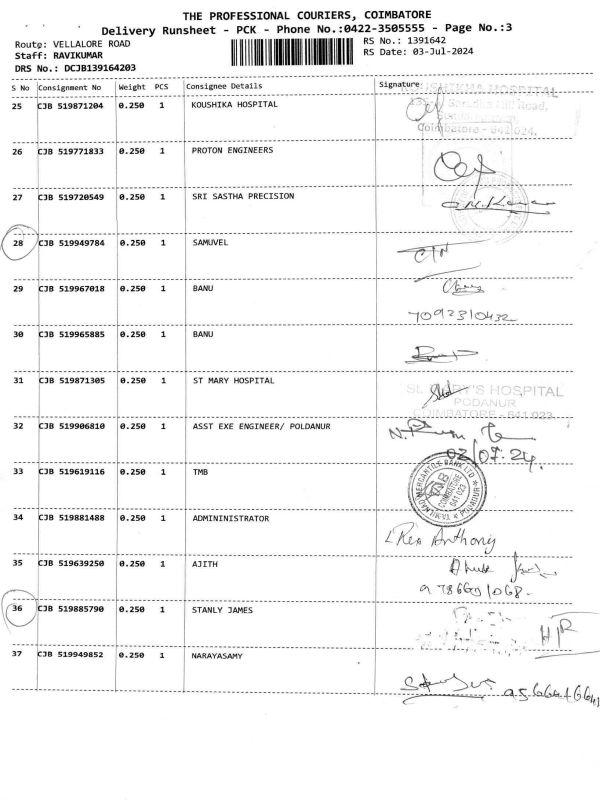 THE PROFESSIONAL COURIERS, COIMBATORE
Delivery Runsheet - PCK - Phone No.:0422-3505555 - Page No.:3
Route: VELLALORE ROAD
RS No.: 1391642
Staff: RAVIKUMAR
RS Date: 03-Jul-2024
DRS No.: DCJB139164203
S No Consignment No Weight PCS Consignee Details Signature
25 CJB 519871204 0.250 1 KOUSHIKA HOSPITAL
KOUSHIKHA HOSPITAL
Road,
Coimbatore - 641 024.
26 CJB 519771833 0.250 1 PROTON ENGINEERS
27 CJB 519720549 0.250 1 SRI SASTHA PRECISION
28 CJB 519949784 0.250 1 SAMUVEL
29 CJB 519967018 0.250 1 BANU
7092310432
30 CJB 519965885 0.250 1 BANU
31 CJB 519871305 0.250 1 ST MARY HOSPITAL
St. MARY'S HOSPITAL
PODANUR
COIMBATORE - 641 023
32 CJB 519906810 0.250 1 ASST EXE ENGINEER/ POLDANUR
03/07.24.
33 CJB 519619116 0.250 1 TMB
TAMILNAD MERCANTILE BANK LTD
COIMBATORE
641 023
PODANUR
34 CJB 519881488 0.250 1 ADMININISTRATOR
Rex Anthony
35 CJB 519639250 0.250 1 AJITH
36 CJB 519885790 0.250 1 STANLY JAMES
37 CJB 519949852 0.250 1 NARAYASAMY